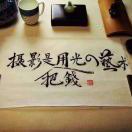 摄影是用光の藝术
犯錢